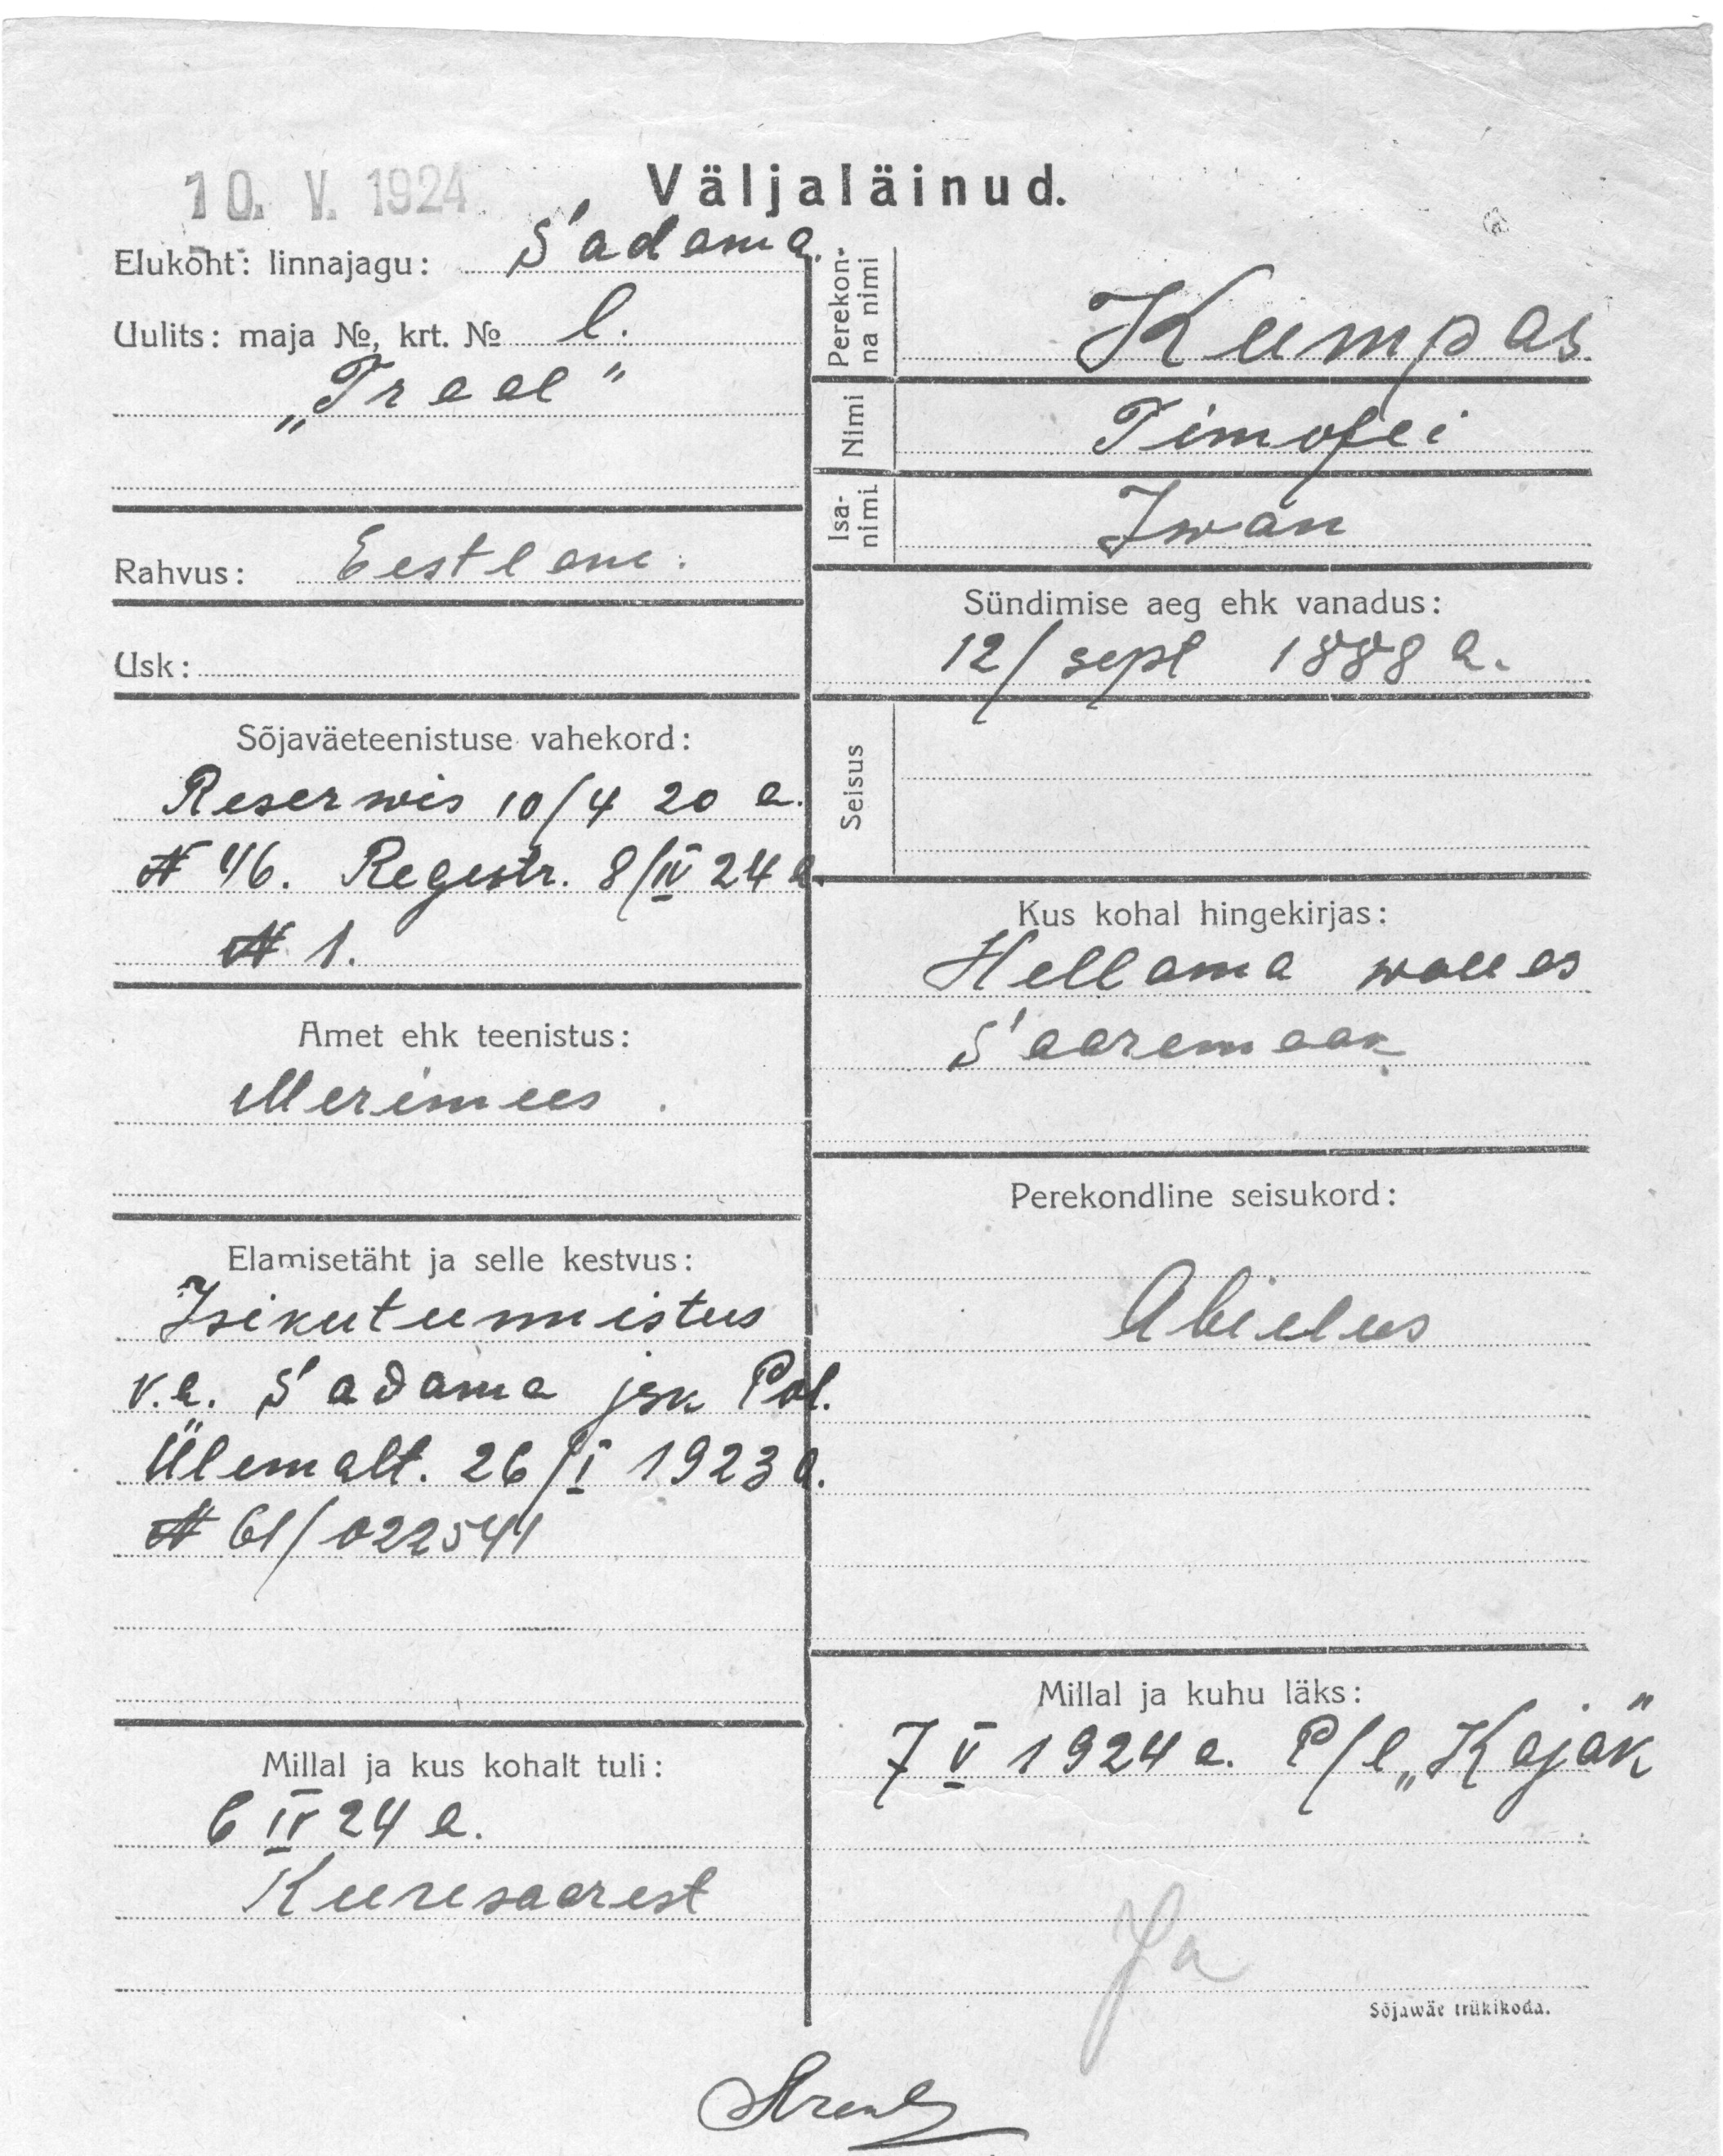 10. V. 1924
Väljaläinud.
Elukoht: linnajagu: Sadama.
Uulits: maja №, krt. № l.
„Traal"
Rahvus: Eestlane.
Usk:
Sõjaväeteenistuse vahekord:
Reserwis 10/4 20 a.
N 46. Regestr. 8/IV 24 a.
N 1.
Amet ehk teenistus:
Merimees.
Elamisetäht ja selle kestvus:
Isikutunnistus
v.a. Sadama jsk Pol.
Ülemalt. 26/I 1923 a.
N 61/022541
Millal ja kus kohalt tuli:
6 IV 24 a.
Kuresaarest
Perekonna nimi
Kumpas
Nimi
Timofei
Isa-
nimi.
Iwan
Sündimise aeg ehk vanadus:
12/sept 1888 a.
Seisus
Kus kohal hingekirjas:
Hellama wallas
Saaremaak
Perekondline seisukord:
Abielus
Millal ja kuhu läks:
7 V 1924 a. P/l „Kajak"
Ja
Sõjawäe trükikoda.